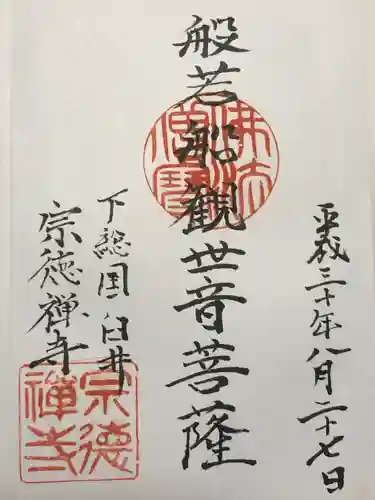 平成三十年八月二十七日
般若船観世音菩薩
下総国臼井
宗徳禅寺
佛法僧寶
宗德禪寺